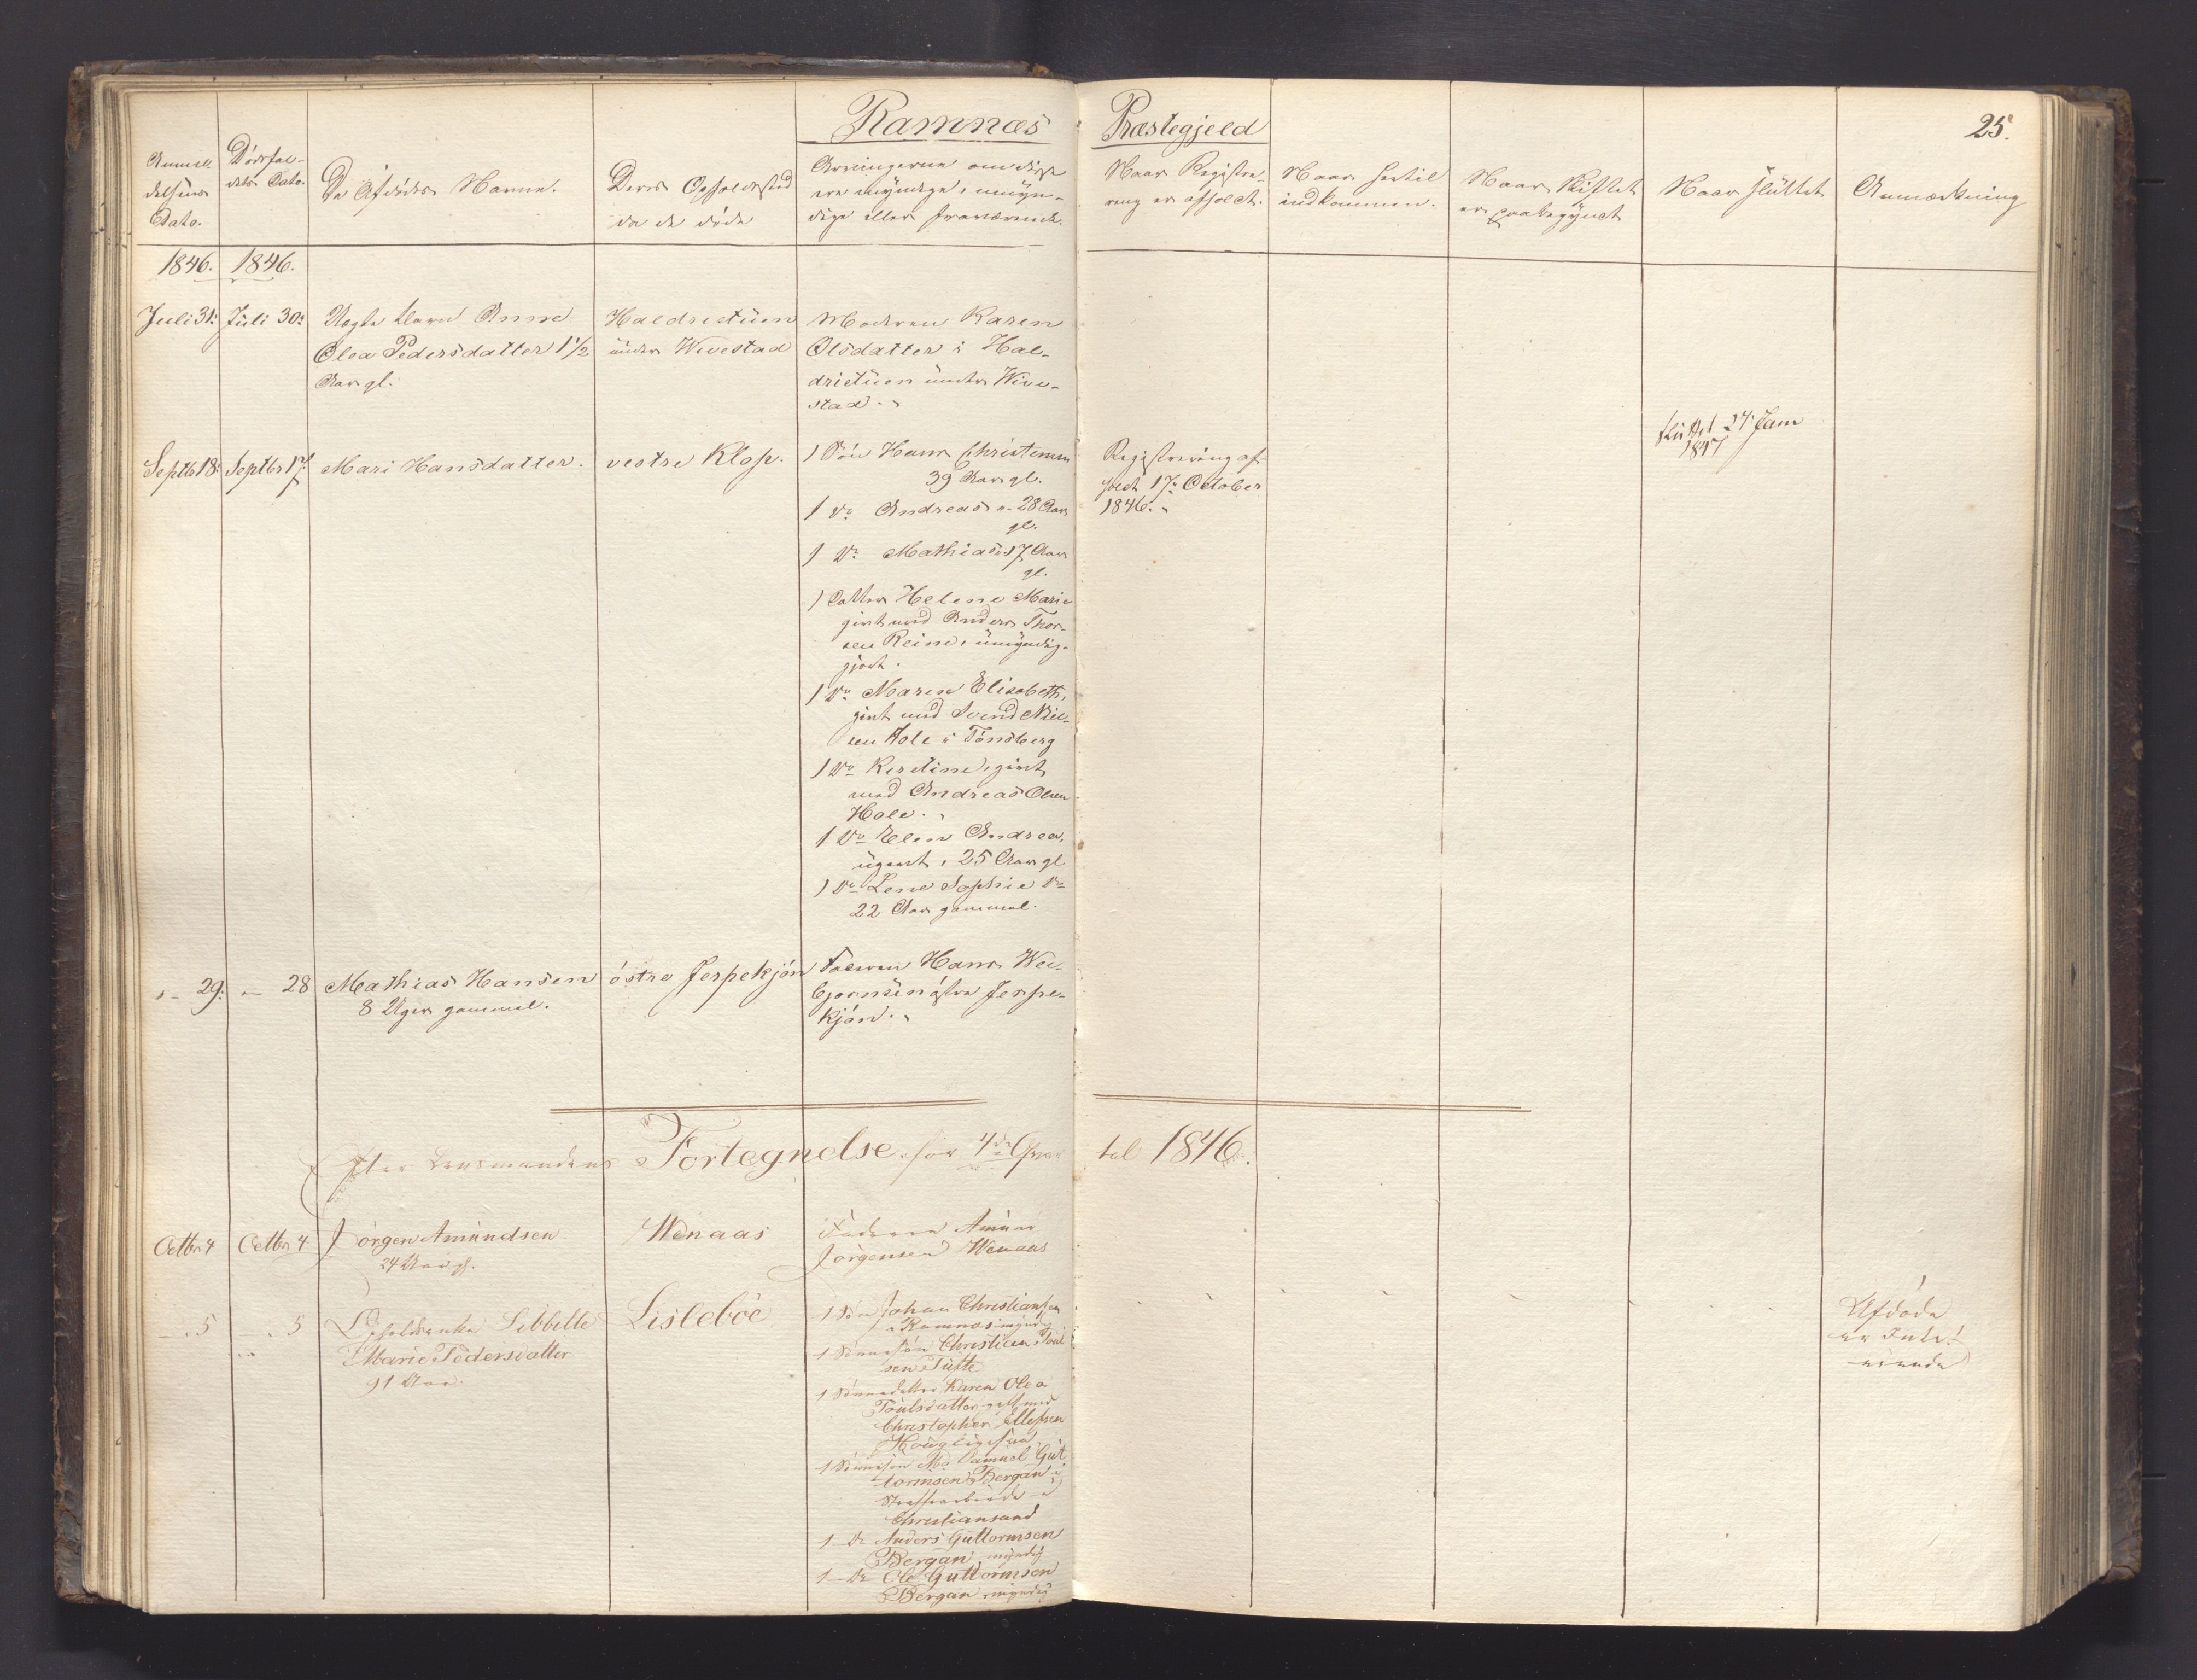 Ramnæs Præstegjeld
25.
Anmel-
delsens
Dato.
Dödsfal-
dets Dato.
De Afdödes Navne.
Deres Opholdssted
da de döde
Arvingerne om disse
ere myndige, umyn-
dige eller fraværende.
Naar Registre-
ring er afholdt.
Naar hertil
indkommen.
Naar Skiftet
er paabegyndt
Naar sluttet
Anmærkning
1846. 1846.
Juli 31. Juli 30.
Ægte Barn Anne
Olea Pedersdatter 1 1/2
Aar gl.
Haldrestüen
ünder Wivestad
Moderen Karen
Olsdatter i Hal-
drestüen ünder Wive-
stad.
Septbr 18. Septbr 17.
Mari Hansdatter.
vestre Klop.
1 Sön Hans Christensen
39 Aar gl.
1 Do Andreas 28 Aar
gl.
1 Do Mathias 17 Aar
gl.
1 Datter Helene Marie
givt med Anders Thor-
sen Reine, ümyndig-
gjort.
1 Do Maren Elisabeth,
givt med Svend Niel-
sen Hole i Tönsberg
1 Do Kirstine, givt
med Andreas Olsen
Hole.
1 Do Elen Andrea,
ügivt, 25 Aar gl
1 Do Lene Sophie Do
22 Aar gammel.
Registrering af-
holdt 17. October
1846.
sluttet 24 Janu
1847
- 29. - 28
Mathias Hansen
8 Uger gammel.
östre Jerpekjön
Faderen Hans
östre Jerpe-
kjön.
Efter Lensmandens Fortegnelse for 4de Qvar tal 1846.
Octbr 4 Octbr 4
Jörgen Amündsen
24 Aar gl.
Wenaas
Faderen Amünd
Jörgensen Wenaas
- 5 - 5
Sibbille
Marie Pedersdatter
91 Aar.
Lisleböe
1 Sön Johan Christiansen
Ramnæs myndig
1 Sönnesön Christian Poul
sen Tüfte
1 Sönnedatter Karen Olea
Poulsdatter gift med
Christopher Ellefsen
1 Sönnesön Samuel Güt
tormsen Bergan i
Strafarbeide i
Christiansand
1 Do Anders Guttormsen
Bergan myndig
1 Do Ole Guttormsen
Bergan myndig
Afdöde
er Intet
eiende